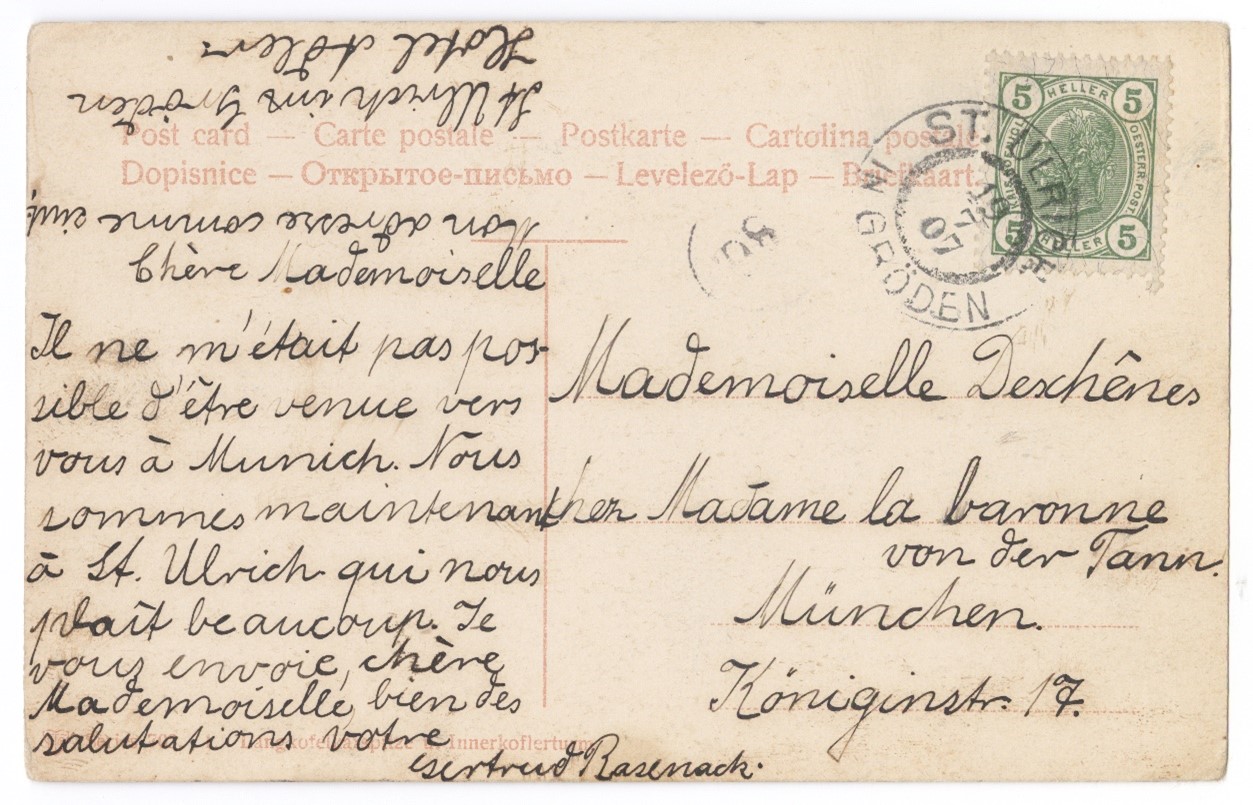 Post card — Carte postale — Postkarte — Cartolina postale
Dopisnice — Открытое-письмо — Levelező-Lap — Briefkaart.
Chère Mademoiselle
Il ne m'était pas pos-
sible d'être venue vers
vous à Munich. Nous
sommes maintenant
à St. Ulrich qui nous
plaît beaucoup. Je
vous envoie, chère
Mademoiselle, bien des
salutations votre
Gertrud Rasenack.
Mon adresse comme
St Ulrich in Gröden
Hotel Adler
Mademoiselle Deschênes
chez Madame la baronne
von der Tann.
München.
Königinstr. 17.
5 HELLER 5
OESTERR. POST
5 HELLER 5
ST. ULRICH
IN GRÖDEN
18
07
Innerkoflerturm